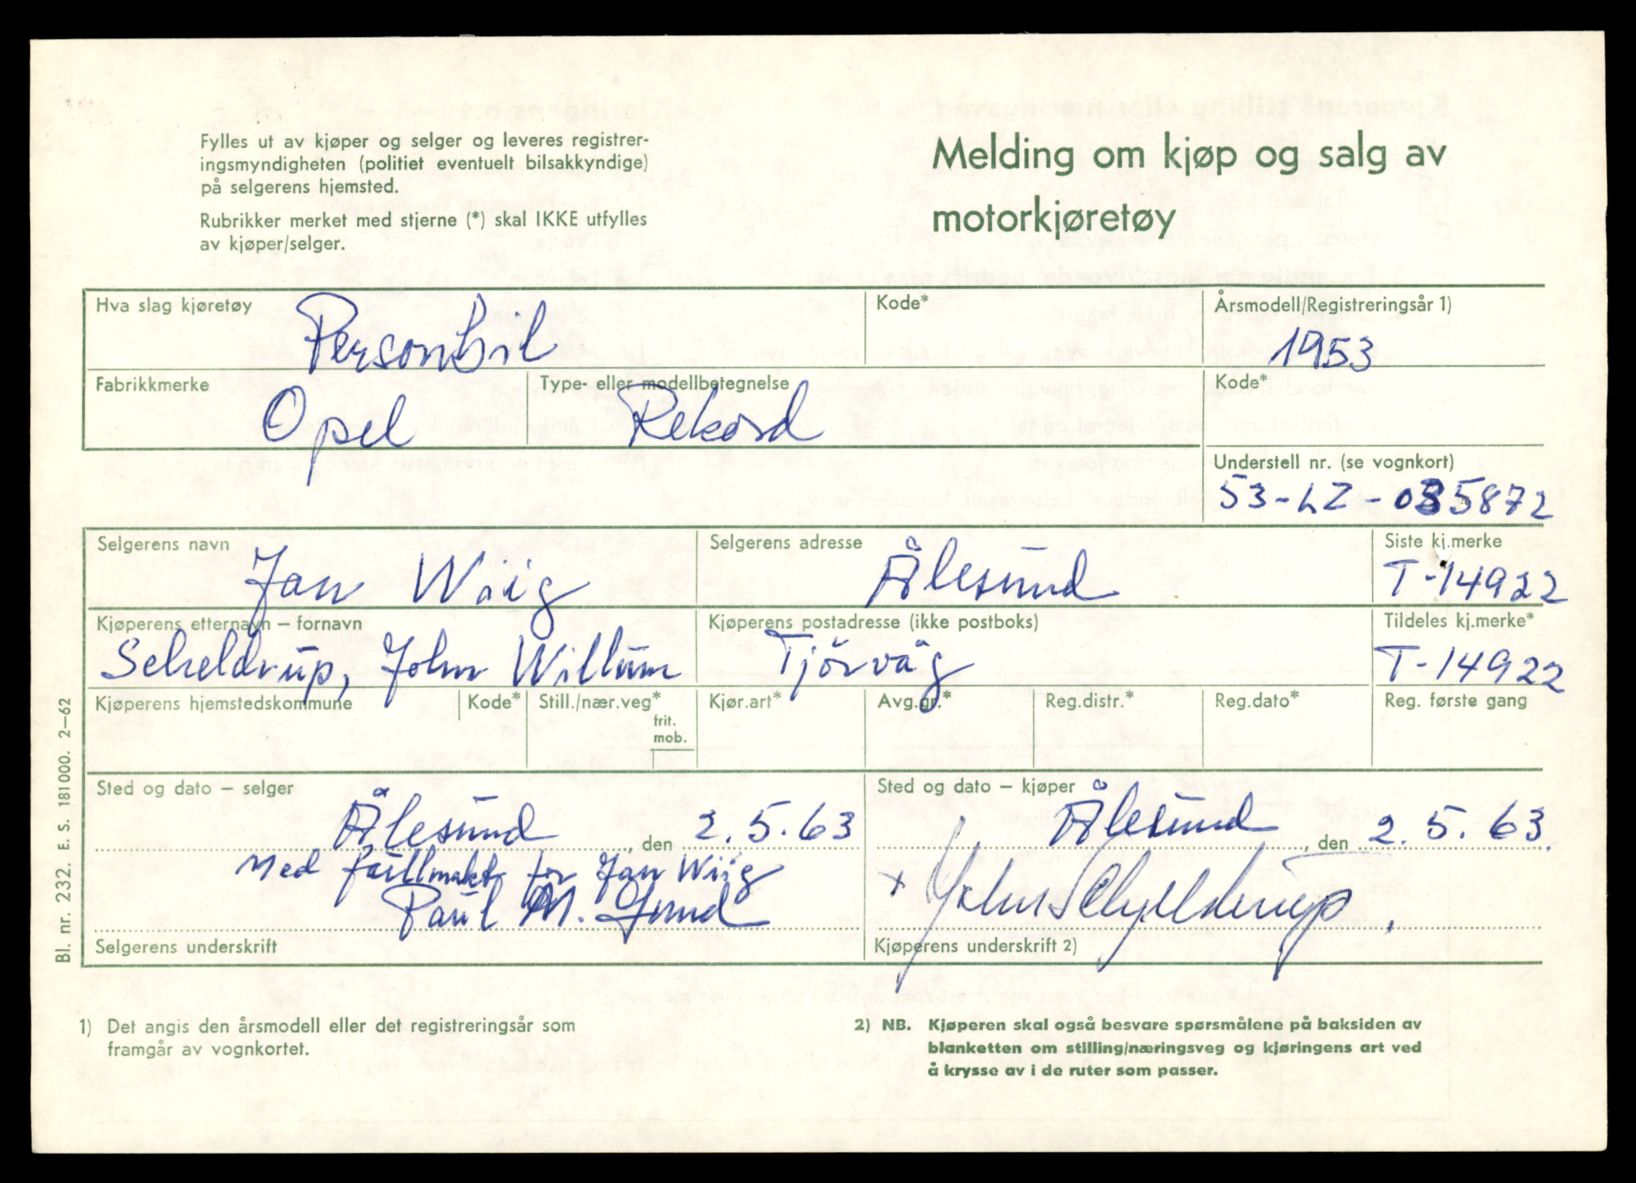 Fylles ut av kjøper og selger og leveres registrer-
ingsmyndigheten (politiet eventuelt bilsakkyndige)
på selgerens hjemsted.
Rubrikker merket med stjerne (*) skal IKKE utfylles
av kjøper/selger.
Melding om kjøp og salg av
motorkjøretøy
Hva slag kjøretøy
Personbil
Kode*
Årsmodell/Registreringsår 1)
1953
Fabrikkmerke
Opel
Type- eller modellbetegnelse
Rekord
Kode*
Understell nr. (se vognkort)
53-LZ-035872
Selgerens navn
Jan Wiig
Selgerens adresse
Ålesund
Siste kj.merke
T-14922
Kjøperens etternavn – fornavn
Scheldrup, John Willum
Kjøperens postadresse (ikke postboks)
Tjörvåg
Tildeles kj.merke*
T-14922
Kjøperens hjemstedskommune
Kode*
Still./nær.veg*
frit.
mob.
Kjør.art*
Avg.gr.*
Reg.distr.*
Reg.dato*
Reg. første gang
Sted og dato – selger
Ålesund, den 2.5.63
Med fullmakt for Jan Wiig
Paul M.
Selgerens underskrift
Sted og dato – kjøper
Ålesund, den 2.5.63.
x John Schjelderup.
Kjøperens underskrift 2)
Bl. nr. 232. E. S. 181000. 2–62
1) Det angis den årsmodell eller det registreringsår som
framgår av vognkortet.
2) NB. Kjøperen skal også besvare spørsmålene på baksiden av
blanketten om stilling/næringsveg og kjøringens art ved
å krysse av i de ruter som passer.